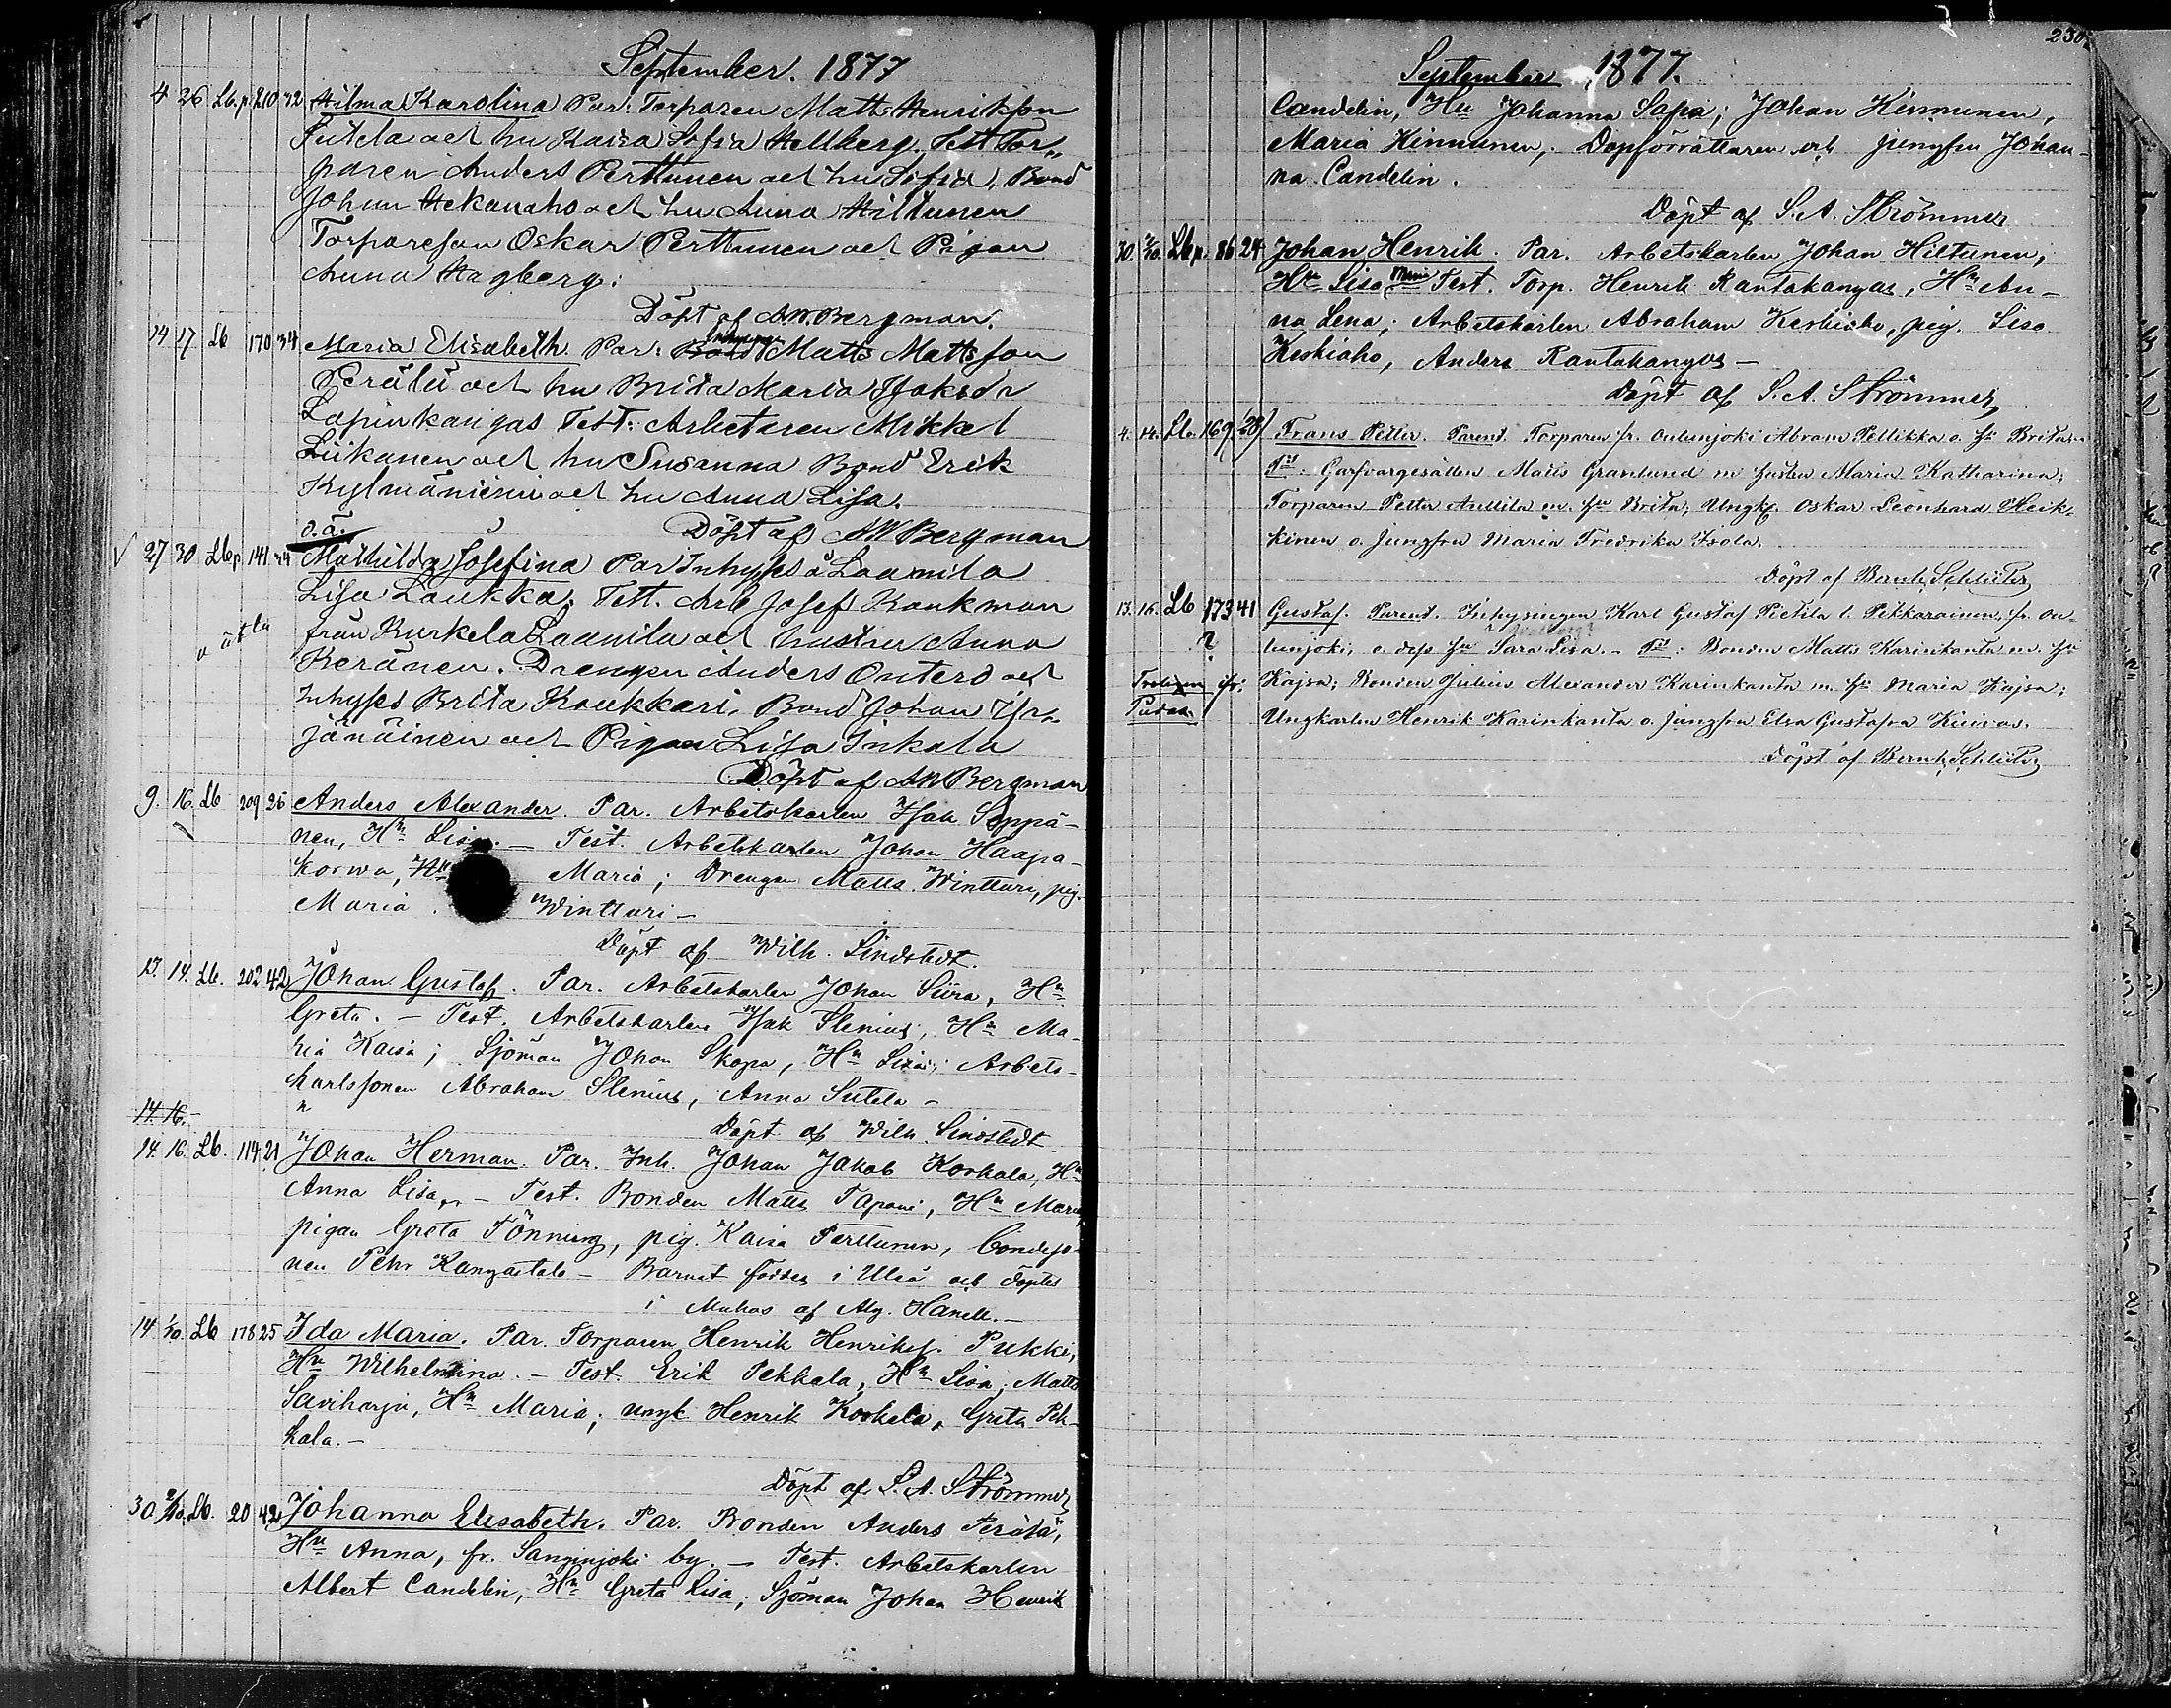 September. 1877
4 26 Lb.p. 210 32 Hilma Karolina Par: Torparen Matts Henriksson
och hu Kaisa Sofia Hellberg. Test Tor-
paren Anders Perttunen och hu Sofia, Bond
Johan Hekanaho och hu Anna Hiltunen
Torpareson Oskar Perttunen och Pigan
Anna Hagberg.
Döpt af A.W. Bergman.
14 17 Lb 170 34 Maria Elisabeth. Par: Bond Inhysingen Matts Mattsson
Perälä och hu Brita Maria Isaksdr
Lapinkangas Test: Arbetaren Mikkel
Liikanen och hu Susanna Bond Erik
Kylmäniemi och hu Anna Lisa.
o.ä. Döpt af A W Bergman
√ 27 30 Lbp. 141 34 Mathilda Josefina Par Inhyses å Laanila
Lisa Laukka. Test. Arb Josef Kaukman
o äkta från Kurkela Laanila och hustru Anna
Keränen. Drengen Anders Outero och
Inhyses Brita Koukkari. Bond Johan Yr-
jänäinen och Pigan Lisa Inkala
Döpt af A W Bergman
9. 16. Lb 209 26 Anders Alexander. Par. Arbetskarlen Isak Seppä-
nen, Hu Lisa. – Test. Arbetskarlen Johan Haapa-
korwa, Hu Maria; Drengen Matts Wintturi, pig.
Maria Wintturi –
Döpt af Wilh. Lindstedt.
13. 14. Lb. 202 42 Johan Gustaf. Par. Arbetskarlen Johan Siira, Hu
Greta. – Test. Arbetskarlen Isak Slenius, Hu Ma-
ria Kaisa; Sjöman Johan Skopa, Hu Lisa; Arbets-
karlssonen Abraham Slenius, Anna Sutela –
14. 16.
Döpt af Wilh. Lindstedt
14. 16. Lb. 114 21 Johan Herman. Par. Inh. Johan Jakob Korkala, Hu
Anna Lisa. – Test. Bonden Matts Tapani, Hu Maria,
pigan Greta Tönning, pig. Kaisa Perttunen, bondeso-
nen Pehr Kangastalo – Barnet föddes i Uleå och döptes
i Muhos af Alg. Hanell. –
14 1/10. Lb 178 25 Ida Maria. Par. Torparen Henrik Henriks. Pukki,
Hu Wilhelmina. – Test. Erik Pekkala, Hu Lisa; Matts
Saviharju, Hu Maria; ungk Henrik Korkala, Greta Pek-
kala. –
Döpt af S. A. Strömmer
30. 2/10. Lb. 20 42 Johanna Elisabeth. Par. Bonden Anders Perälä,
Hu Anna, fr. Sanginjoki by. – Test. Arbetskarlen
Albert Candelin, Hu Greta Lisa; Sjöman Johan Henrik
230.
September 1877.
Candelin, Hu Johanna Sofia; Johan Kinnunen,
Maria Kinnunen; Dopförrättaren och jungfru Johan-
na Candelin.
Döpt af S. A. Strömmer
30. 7/10. Lbp. 86 24 Johan Henrik. Par. Arbetskarlen Johan Hiltunen,
Hu Lisa Maria Test. Torp. Henrik Rantakangas, Hu An-
na Lena; Arbetskarlen Abraham Keskiaho, pig. Lisa
Keskiaho, Anders Rantakangas –
Döpt af S. A. Strömmer
4. 14. Lb. 169 28 Frans Petter. Parent. Torparen fr. Oulunjoki Abram Pellikka o. hu Brita.
Tst: Garfvargesällen Matts Granlund m hustru Maria Katharina;
Torparen Petter Anttila m. hu Brita; Ungk. Oskar Leonhard Heik-
kinen o. Jungfru Maria Fredrika Isola.
Döpt af Bernh. Schlüter
13. 16. Lb 173 41 Gustaf. Parent. Inhysingen Karl Gustaf Pietila l. Pikkarainen fr. Ou-
? lunjoki, o. dess hu Sara Lisa. – Tst: Bonden Matts Karinkanta m. hu
Troligen fr. Kajsa; Bonden Julius Alexander Karinkanta m. hu Maria Kajsa;
Pudas Ungkarlen Henrik Karinkanta o. jungfru Elsa Gustafva
Döpt af Bernh. Schlüter